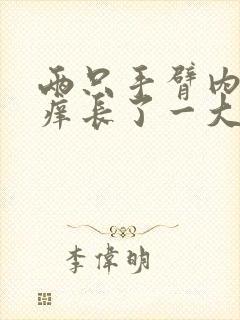 两只手臂内
痒长了一大
李偉明